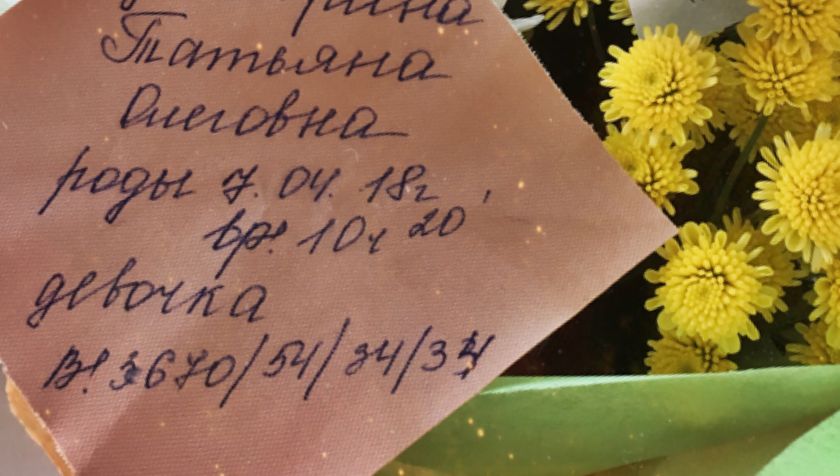 Татьяна
Олеговна
роды 7.04.18г
вр. 10ч 20'
девочка
В. 3670/54/34/34